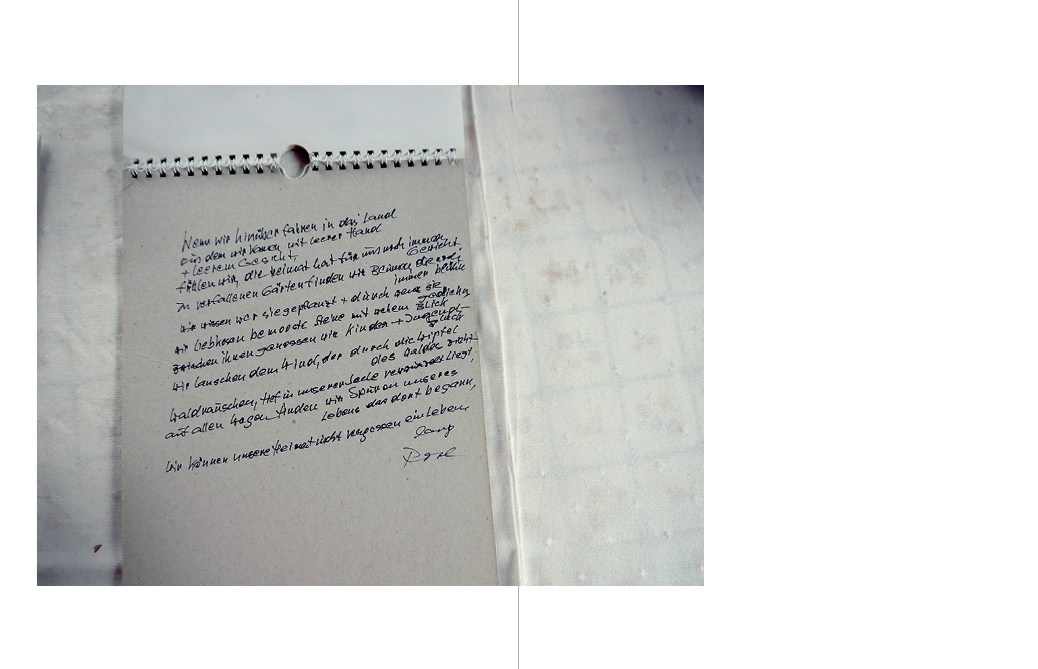 Wenn wir hinüber fahren in das Land
aus dem wir kamen mit leerer Hand
+ leerem Gesicht,
fühlen wir, die Heimat hat für uns noch immer
Gewicht.
In verfallenen Gärten finden wir Bäume, die noch
immer blühn
wir wissen wer sie gepflanzt + durch wen sie
wir liebkosen bemooste Steine mit wehem Blick
zwischen ihnen genossen wir Kinder + Jugend-
wir lauschen dem Wind, der durch die Wipfel
des Waldes zieht
Waldrauschen, tief in unserer Seele verwurzelt liegt,
auf allen Wegen finden wir Spuren unseres
Lebens das dort begann,
wir können unsere Heimat nicht vergessen ein Leben
lang